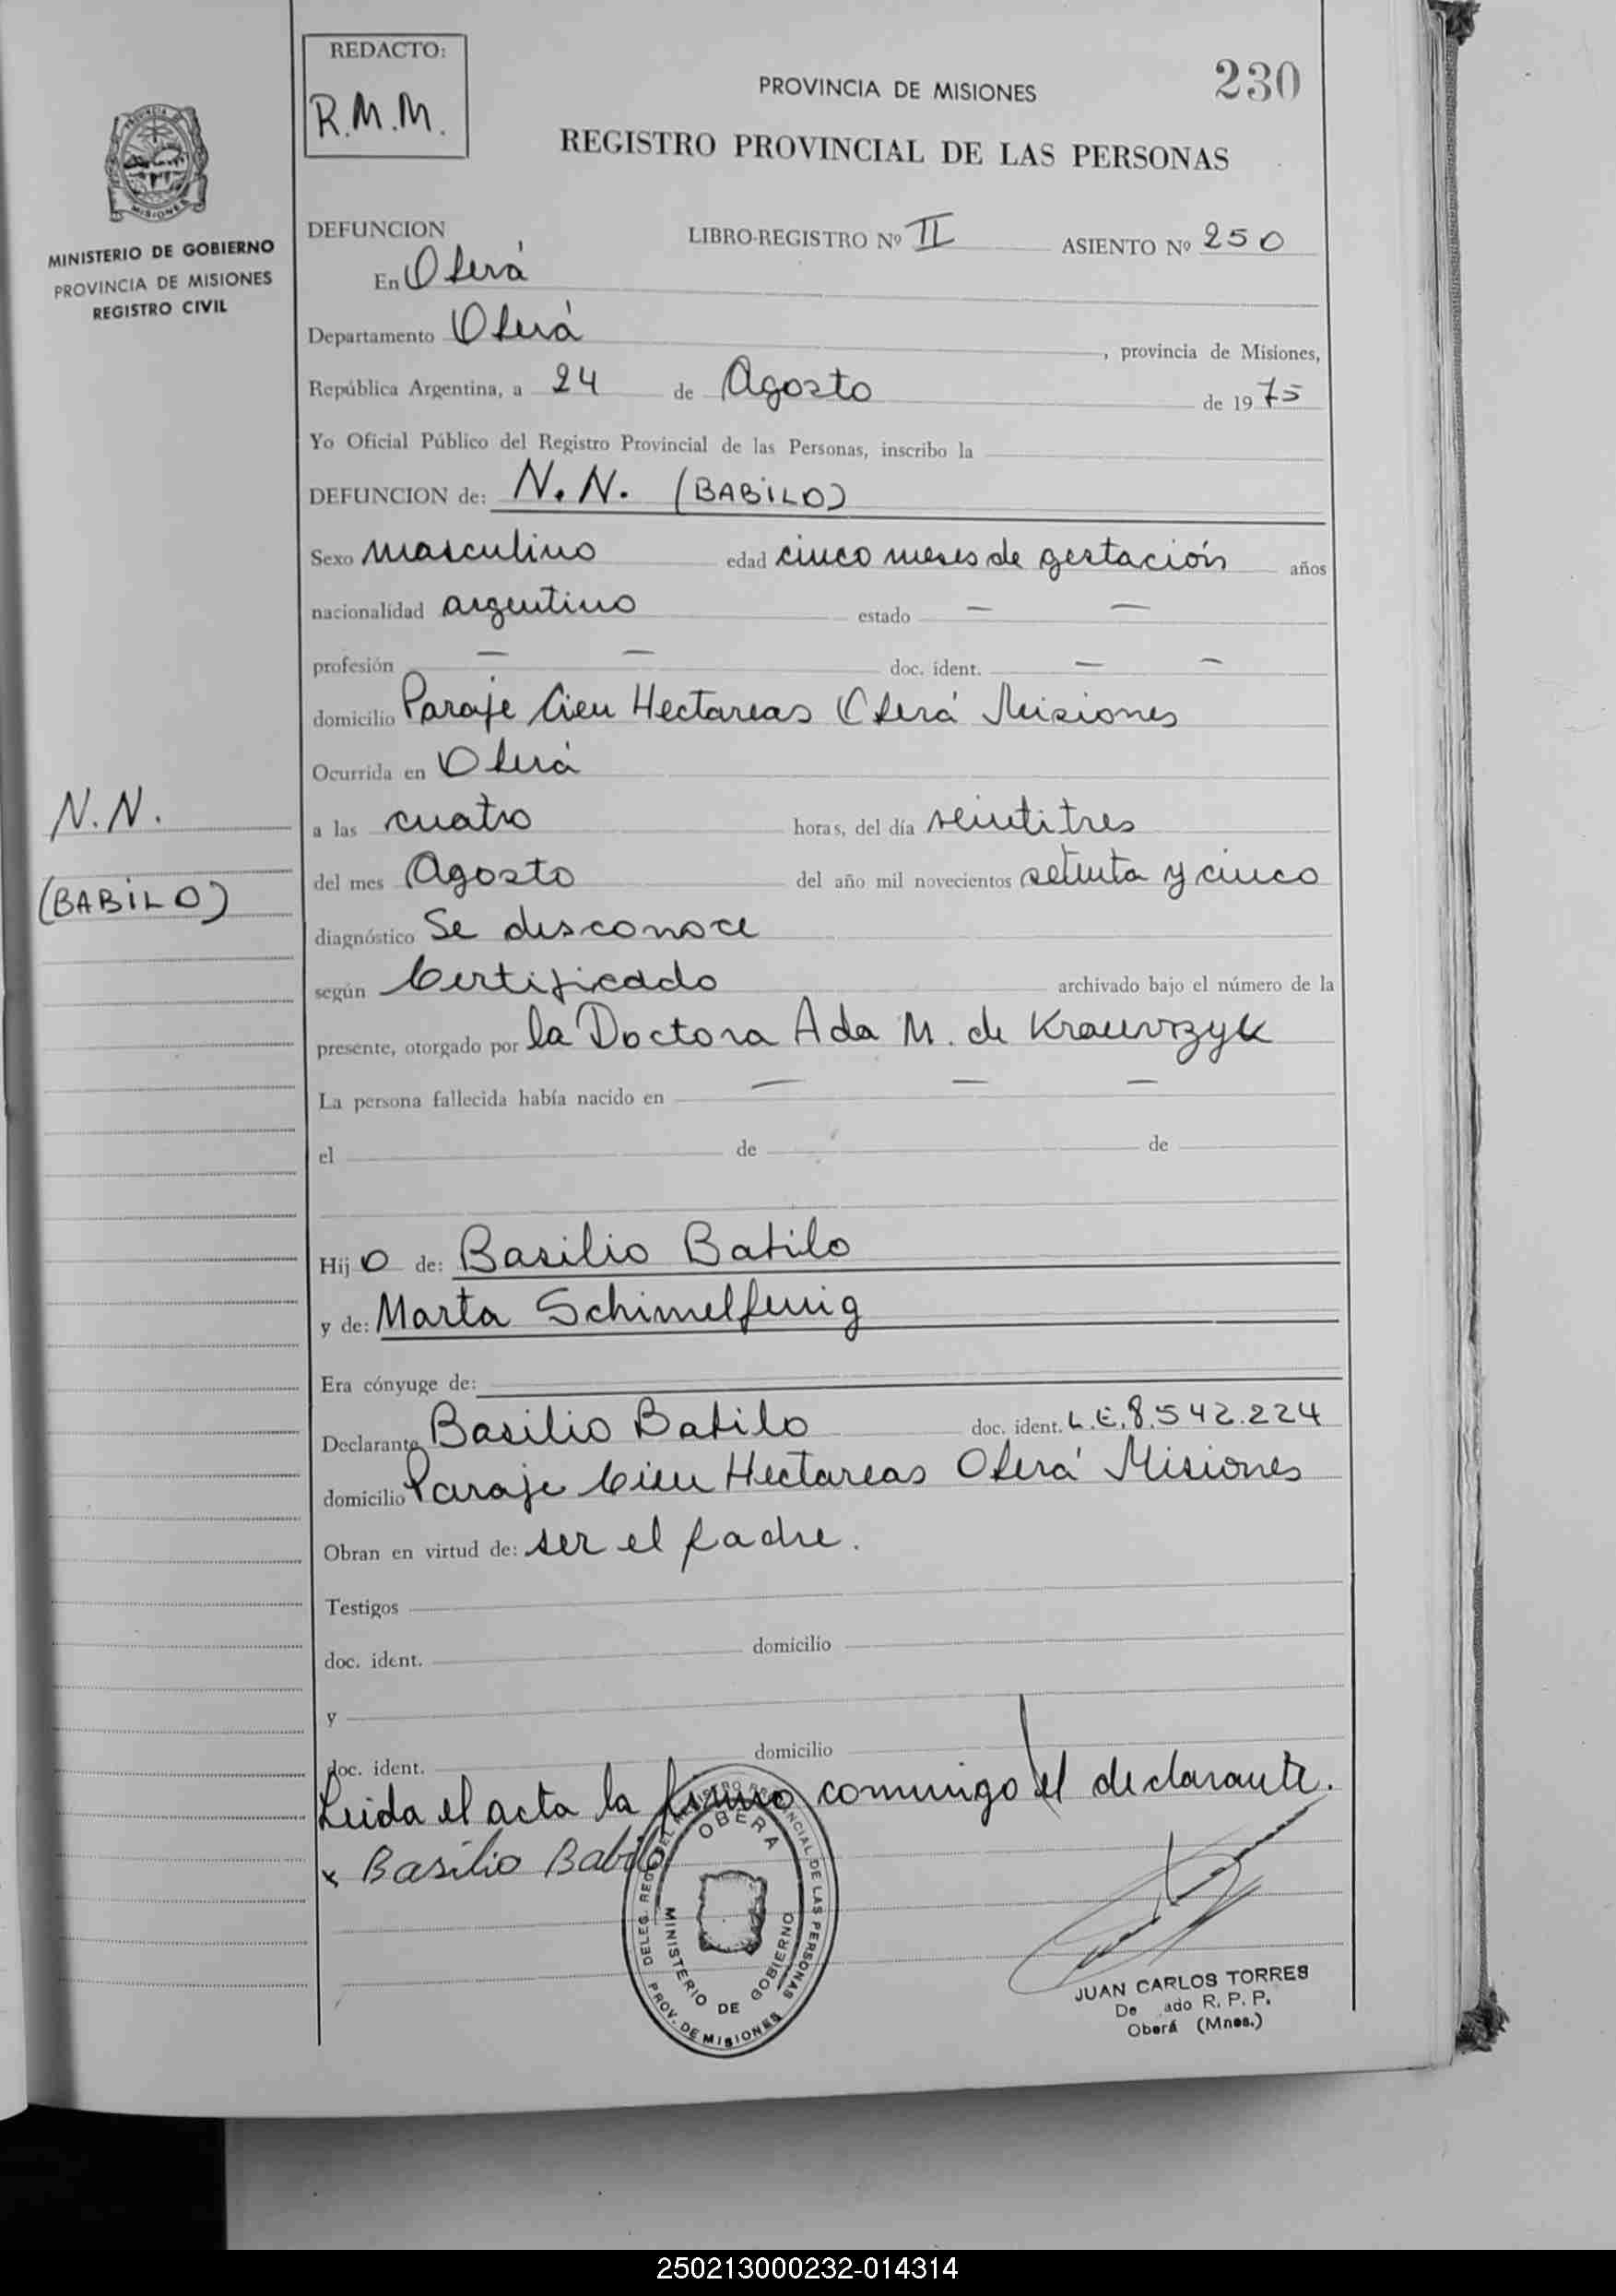 REDACTO:
R.M.M.
PROVINCIA DE MISIONES
230
REGISTRO PROVINCIAL DE LAS PERSONAS
MISIONES
MINISTERIO DE GOBIERNO
PROVINCIA DE MISIONES
REGISTRO CIVIL
DEFUNCION LIBRO-REGISTRO Nº II ASIENTO Nº 250
En Oberá
Departamento Oberá, provincia de Misiones,
República Argentina, a 24 de Agosto de 1975
Yo Oficial Público del Registro Provincial de las Personas, inscribo la
DEFUNCION de: N.N. (BABILO)
Sexo masculino edad cinco meses de gestación años
nacionalidad argentino estado — —
profesión — — doc. ident. — —
domicilio Paraje Cien Hectareas Oberá Misiones
Ocurrida en Oberá
N.N.
a las cuatro horas, del día veintitres
del mes Agosto del año mil novecientos setenta y cinco
(BABILO)
diagnóstico Se desconoce
según Certificado archivado bajo el número de la
presente, otorgado por la Doctora Ada M. de Krawczyk
La persona fallecida había nacido en — — —
el de de
Hijo de: Basilio Babilo
y de: Marta Schimelfenig
Era cónyuge de:
Declarante Basilio Babilo doc. ident. L.E. 8.542.224
domicilio Paraje Cien Hectareas Oberá Misiones
Obran en virtud de: ser el padre.
Testigos
doc. ident. domicilio
y
doc. ident. domicilio
Leida el acta la firmo conmigo el declarante.
x Basilio Babilo
DELEG. REG. DEL REGISTRO PROVINCIAL DE LAS PERSONAS
OBERA
MINISTERIO DE GOBIERNO
PROV. DE MISIONES
JUAN CARLOS TORRES
De ado R. P. P.
Oberá (Mnes.)
250213000232-014314